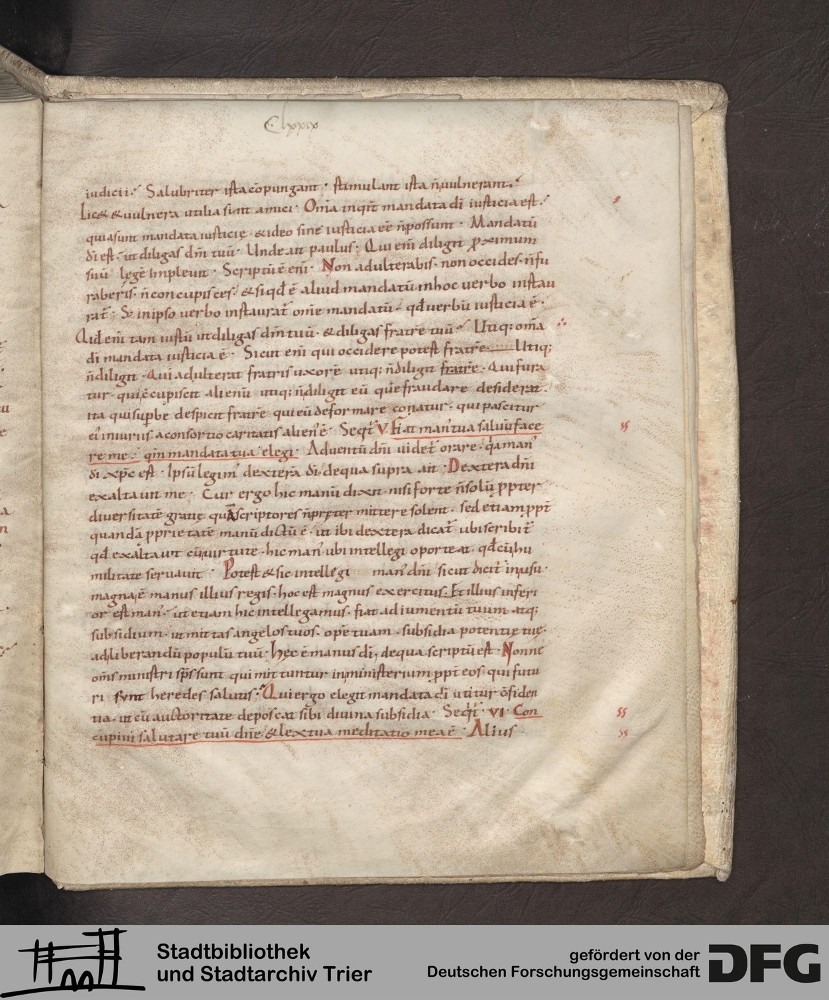 Clxxix
iudicii. Salubriter ista cōpungant. stimulant ista n̄ uulnerant.
lic& & uulnera utilia sint amici. Om̄ia inq̄t mandata dī iusticia est.
quia sunt mandata iusticię. & ideo sine iusticia ēe n̄ possunt. Mandatū
dī est. ut diligas dn̄m tuū. Unde ait paulus. Qui enī diligit proximum
suū legē impleuit. Scriptū ē enī. Non adulterabis. non occides. n̄ fu
raberis. n̄ concupisces. & siqd ē aliud mandatū in hoc uerbo instau
rat̄. Se in ipso uerbo instaurat̄ om̄e mandatū. qd uerbū iusticia ē.
Quid enī tam iustū ut diligas dn̄m tuū. & diligas fratrē tuū. Utiq; om̄a
di mandata iusticia ē. Sicut enī qui occidere potest fratrē Utiq;
n̄ diligit. Qui adulterat fratris uxorē utiq; n̄ diligit fratrē. Qui fura
tur. qui cōcupiscit alienū utiq; n̄ diligit eū quē fraudare desiderat.
ita qui supbe despicit fratrē qui eū deformare conatur. qui pascitur
ei iniuriis a consortio caritatis alien' ē. Seqt̄ V Fiat man' tua saluū face
re me. qm̄ mandata tua elegi. Aduentū dn̄i uidet̄ orare. qa man'
dī xpc est. Ipsū legim' dexterā dī. de qua supra ait. Dextera dn̄i
exaltauit me. Cur ergo hic manū dixit. nisi forte n̄ solū ppter
diuersitatē gratię quā scriptores n̄ preter mittere solent. sed etiam ppt̄
quandā pprietatē manū dictū ē. ut ibi dextera dicat̄ ubi scribit̄
qd exaltauit cū uirtute. hic man' ubi intellegi oporteat. qd cū hu
militate seruauit. Potest & sic intellegi man' dn̄i sicut dicit̄ in usu.
magna ē manus illius regis. hoc est magnus exercitus. Et illius inferi
or est man'. ut etiam hic intellegamus. fiat ad iumentū tuum atq;
subsidium. ut mittas angelos tuos. opē tuam. subsidia potentię tuę.
ad liberandū populū tuū. Hęc ē manus dī. de qua scriptū est. Nonne
om̄s ministri sp̄s sunt qui mittuntur in ministerium ppt̄ eos. qui futu
ri sunt heredes salutis. Qui ergo elegit mandata dī utitur cōfiden
tia. ut cū auctoritate deposcat sibi diuina subsidia. Seqt̄ VI. Con
cupiui salutare tuū dn̄e & lex tua meditatio mea ē. Alius
Stadtbibliothek
und Stadtarchiv Trier
gefördert von der
Deutschen Forschungsgemeinschaft
DFG